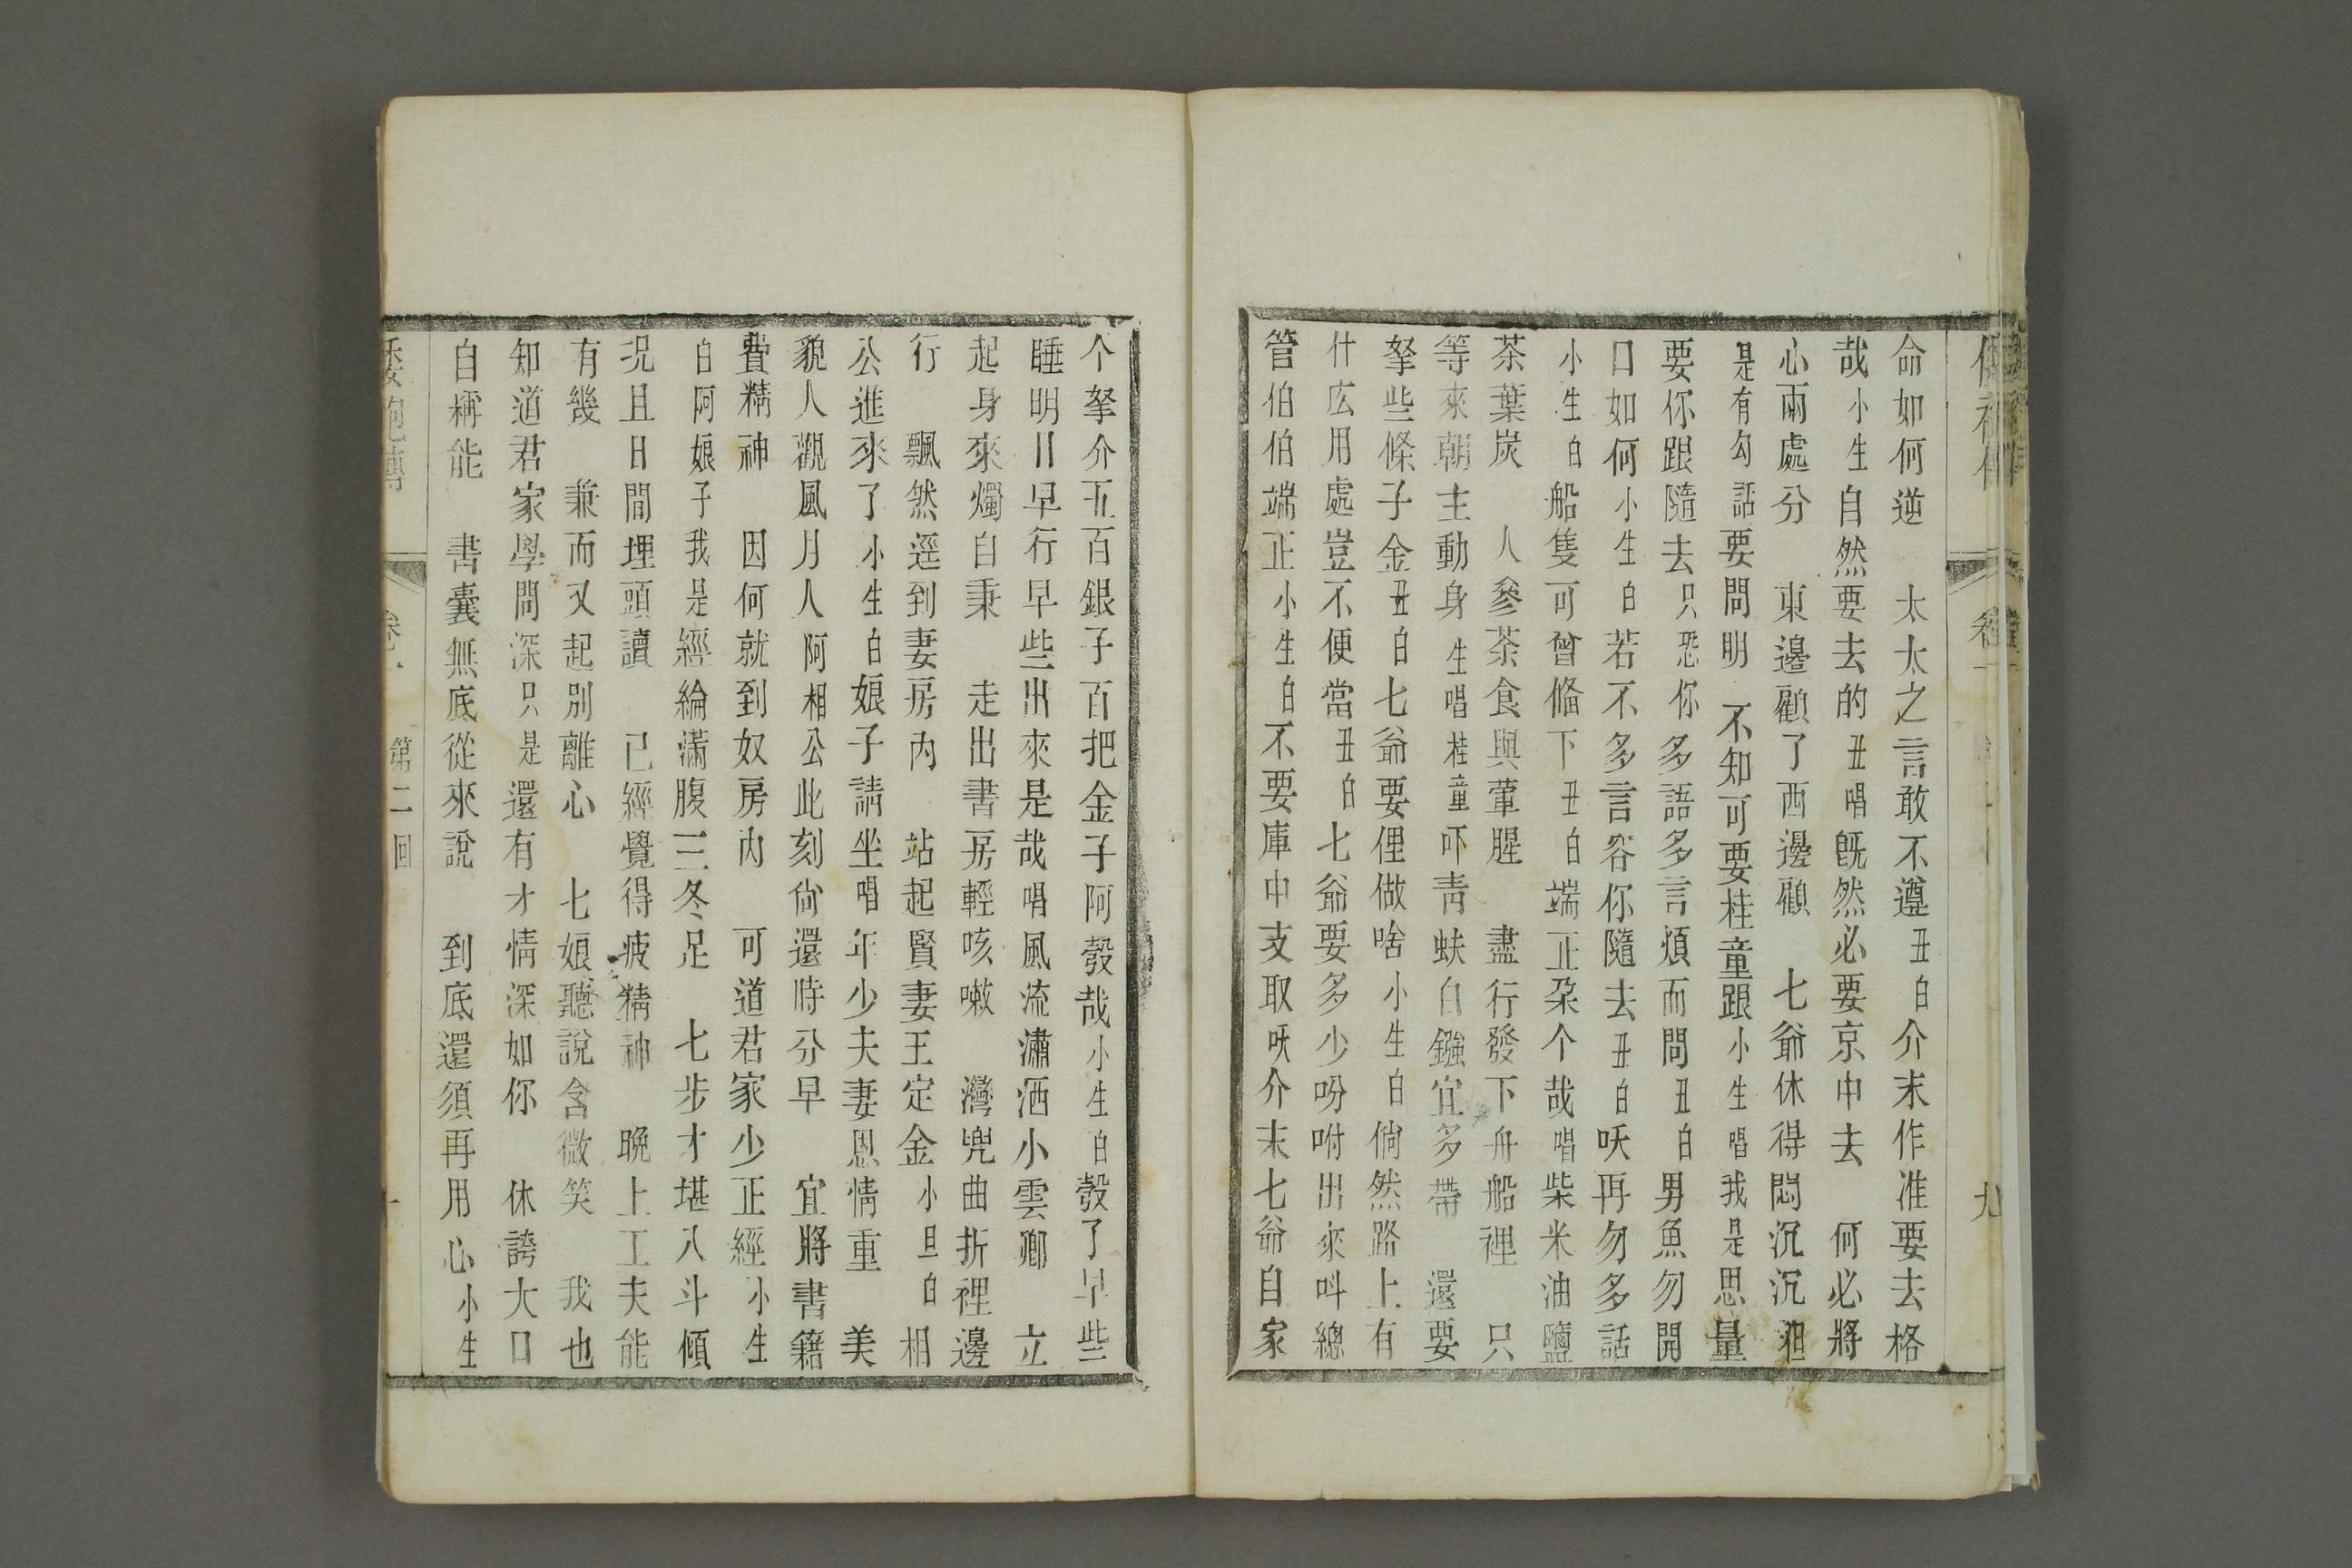 命如何逆　太太之言敢不遵丑白介末作准要去格
哉小生自然要去的丑唱旣然必要京中去　何必將
心兩處分　東邊顧了西邊顧　七爺休得悶沉沉
是有勾話要問明　不知可要桂童跟小生唱我是思量
要你跟隨去只恐你多語多言煩而問丑白男魚勿開
口如何小生白若不多言容你隨去丑白呅再勿多話
小生白船隻可曾俻下丑白端正朶个哉唱柴米油鹽
茶葉炭　人參茶食與葷腥　盡行發下舟船裡　只
等來朝主動身生唱桂童吓靑蚨白鏹宜多帶　還要
拏些條子金丑白七爺要俚做啥小生白倘然路上有
什庅用處豈不便當丑白七爺要多少吩咐出來呌總
管伯伯端正小生白不要庫中支取呅介末七爺自家
个拏介五百銀子百把金子阿彀哉小生白彀了早些
睡明日早行早些出來是哉唱風流瀟洒小雲卿　立
起身來燭自秉　走出書房輕咳嗽　灣兜曲折裡邊
行　飄然逕到妻房內　站起賢妻王定金小旦白相
公進來了小生白娘子請坐唱年少夫妻恩情重　美
貌人觀風月人阿相公此刻尙還時分早　宜將書籍
費精神　因何就到奴房內　可道君家少正經小生
白阿娘子我是經綸滿腹三冬足　七步才堪八斗傾
况且日間埋頭讀　已經覺得疲精神　晩上工夫能
有幾　兼而又起別離心　七娘聽說含微笑　我也
知道君家學問深只是還有才情深如你　休誇大口
自稱能　書囊無底從來說　到底還須再用心小生
第二回